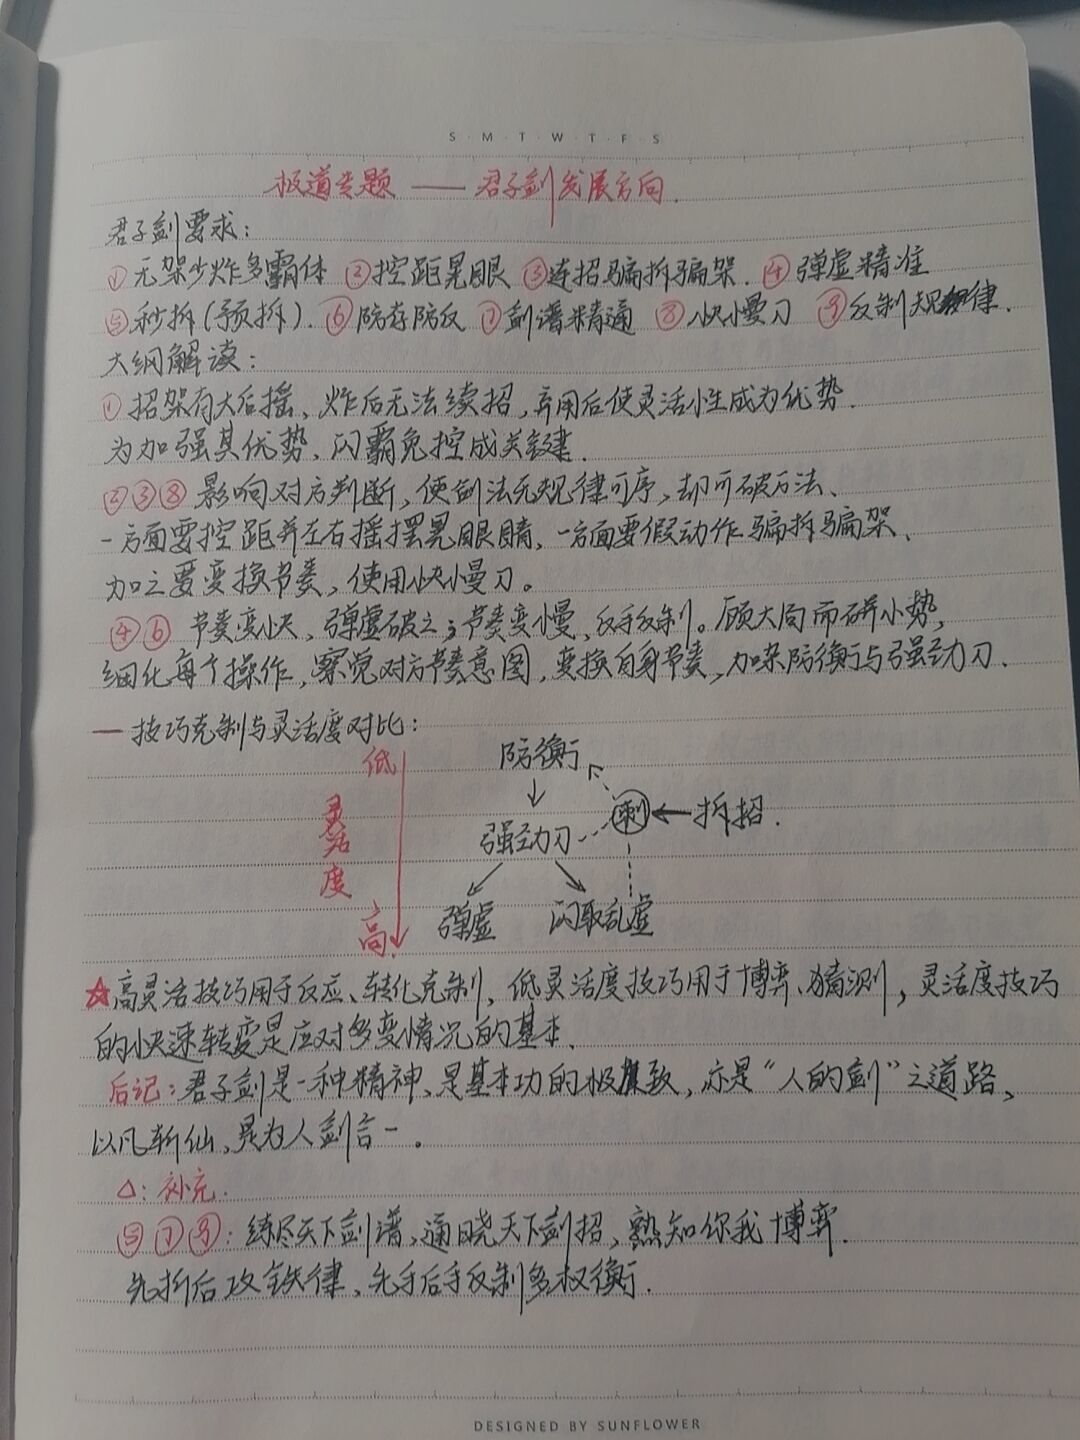 S M T W T F S
极道专题 —— 君子剑发展方向.
君子剑要求:
①无架少炸多霸体 ②控距晃眼 ③连招骗拆骗架. ④弹虚精准
⑤秒拆(预拆). ⑥防存防反 ⑦剑谱精通 ⑧快慢刀 ⑨反制规律.
大纲解读:
①招架有大后摇、炸后无法续招,弃用后使灵活性成为优势.
为加强其优势,闪霸免控成关键.
②③⑧影响对方判断,使剑法无规律可序,却可破万法、
一方面要控距并左右摇摆晃眼睛,一方面要假动作骗拆骗架、
加之要变换节奏,使用快慢刀。
④⑥ 节奏变快,弹虚破之;节奏变慢,反手反制。顾大局而研小势,
细化每个操作,察觉对方节奏意图,变换自身节奏,加杂防衡与强劲刀.
一 技巧克制与灵活度对比:
低
灵活度
高.
防衡
强劲刀
刺
拆招.
弹虚
闪取乱虚
☆高灵活技巧用于反应、转化克制,低灵活度技巧用于博弈、猜测,灵活度技巧
的快速转变是应对多变情况的基本.
后记:君子剑是一种精神、是基本功的极致,亦是“人的剑”之道路,
以凡斩仙,是为人剑合一。
△:补充.
⑤⑦⑨:练尽天下剑谱,通晓天下剑招,熟知你我博弈.
先拆后攻铁律、先手后手反制多权衡.
DESIGNED BY SUNFLOWER